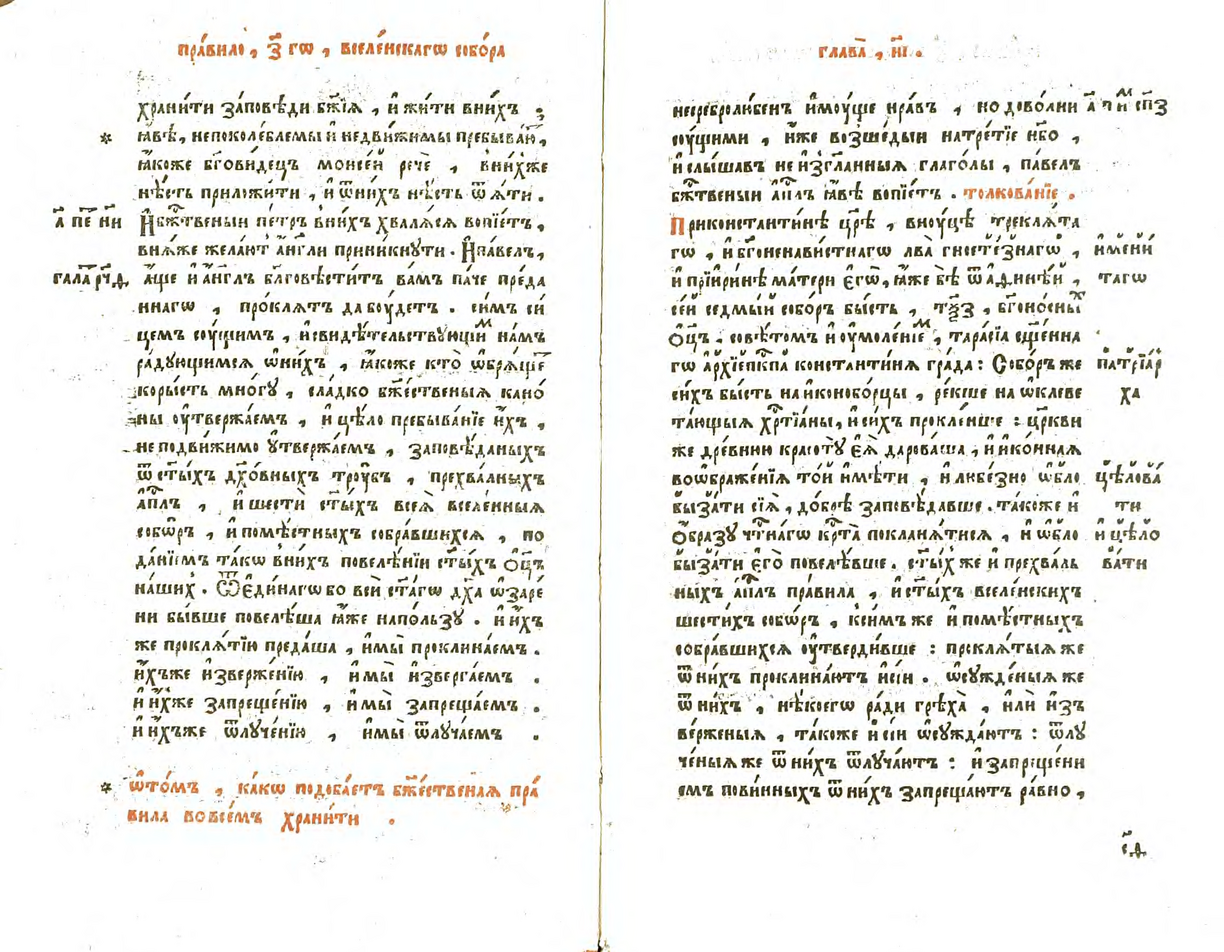 пра́вило, з҃ гѡ, вселе́нскагѡ собо́ра
храни́ти за́повѣди бж҃їѧ, и҆ жи́ти вни́хъ ;
* ꙗ҆́вѣ, непоколе́блемы и҆ недви́жимы пребыва́ю,
ꙗ҆́коже бг҃ови́децъ моисе́й речѐ, вни́хже
нѣ́сть приложи́ти, и҆ ѿни́хъ нѣ́сть ѿѧ́ти.
а҃ пе҃ ни И҆бж҃твеныи пе́тръ вни́хъ хвалѧ́сѧ вопїе́тъ,
внѧ́же жела́ют а҆́нг҃ли прини́кнути. И҆па́велъ,
гала҃ рч҃д а҆́ще и҆ а҆́нг҃лъ бл҃говѣсти́тъ ва́мъ па́че преда
ннагѡ, про́клѧтъ да бꙋ́детъ. си́мъ си́
цемъ сꙋ́щимъ, и҆свидѣ́тельствꙋющим на́мъ
ра́дꙋющимсѧ ѡ҆ни́хъ, ꙗ҆́коже кто̀ ѡ҆брѧ́щет
коры́сть мно́гꙋ, сла́дко бж҃е́ственыѧ кано́
ны ᲂу҆твержа́емъ, и҆ цѣ́ло пребыва́нїе и҆́хъ,
неподви́жимо ᲂу҆твержа́емъ, заповѣ́даныхъ
ѿ ст҃ы́хъ дх҃о́вныхъ трꙋ́бъ, прехва́лныхъ
а҆пⷭ҇лъ, и҆ шестѝ ст҃ы́хъ всеѧ̀ вселе́нныѧ
собѡ́ръ, и҆помѣ́стныхъ собра́вшихсѧ, по
да́нїемъ та́кѡ вни́хъ повелѣ́нїи ст҃ы́хъ ѻ҆ц҃ъ
на́шихъ. Ѿ є҆ди́нагѡ бо всѝ ст҃а́гѡ дх҃а ѡ҆заре
ни бы́вше повелѣ́ша ꙗ҆́же напо́льзꙋ. и҆ и҆́хъ
же проклѧ́тїю преда́ша, и҆мы̀ проклина́емъ.
и҆́хъже и҆зверже́нїю, и҆мы̀ и҆зверга́емъ .
и҆ и҆́хже запреще́нїю, и҆мы̀ запреща́емъ .
и҆ и҆́хъже ѿлꙋче́нїю, и҆мы̀ ѿлꙋча́емъ .
* ѡ҆то́мъ, ка́кѡ подоба́етъ бж҃е́ственаѧ пра́
вила вовсе́мъ храни́ти .
глава̀, и҃і.
несребролю́бенъ и҆мꙋ́ще нра́въ, но дово́лни
сꙋ́щими, и҆́же возше́дыи натре́тїе нб҃о,
и҆ слы́шавъ неи҆зг҃ланныѧ глаго́лы, па́велъ
бж҃твеныи а҆пⷭ҇лъ ꙗ҆́вѣ вопїе́тъ. толкова́нїе.
Приконстанти́нѣ цр҃ѣ̀, внꙋ́цѣ треклѧ́та
гѡ, и҆ бг҃онена́вистнагѡ лва̀ гносте́знагѡ, и҆мени́
и҆ прии҆ри́нѣ ма́тери є҆гѡ̀, ꙗ҆́же бѣ̀ ѿ а҆ѳи́нѣи, тагѡ
се́й седмы́й собо́ръ бы́сть, бг҃оно́сных
ѻ҆ц҃ъ. совѣ́томъ и҆ ᲂу҆моле́ниемъ, тара́сїа сщ҃е́нна
гѡ а҆рхїеп҃кпа константи́нѧ гра́да: Собо́ръ же патрїа́р
си́хъ бы́сть на и҆конобо́рцы, ре́кше на ѡ҆клеве ха
та́ющыѧ хрⷭ҇тїа́ны, и҆ си́хъ прокле́нше: цр҃кви
же дре́внюю красотꙋ̀ є҆ѧ̀ дарова́ша, и҆ и҆ко́нная
воѡбраже́нїѧ то́й и҆мѣ́ти, и҆ любе́зно ѡ҆бло цѣлова́
быза́ти сїѧ̀, до́брѣ заповѣ́давше. та́коже и҆ ти
ѻ҆́бразꙋ чⷭ҇тна́гѡ крⷭ҇та̀ покланѧ́тисѧ, и҆ ѡ҆бло и҆ цѣло
быза́ти є҆го̀ повелѣ́вше. ст҃ы́х же и҆ прехва́ль ва́ти
ныхъ а҆пⷭ҇лъ пра́вила, и҆ ст҃ы́хъ вселе́нскихъ
шести́хъ собѡ́ръ, кси́мъ же и҆ помѣ́стныхъ
собра́вшихсѧ ᲂу҆тверди́вше: проклѧ́тыѧ же
ѿ ни́хъ проклина́ютъ и҆ сїи. ѡ҆сꙋжде́ныѧ же
ѿ ни́хъ, нѣ́коегѡ ра́ди грѣха̀, и҆лѝ и҆зъ
ве́рженыѧ, та́коже и҆ сїи ѡ҆сꙋжда́ютъ: ѿлꙋ
че́ныѧ же ѿ ни́хъ ѿлꙋча́ютъ: и҆ запреще́ни
емъ пови́нныхъ ѿ ни́хъ запреща́ютъ ра́вно,